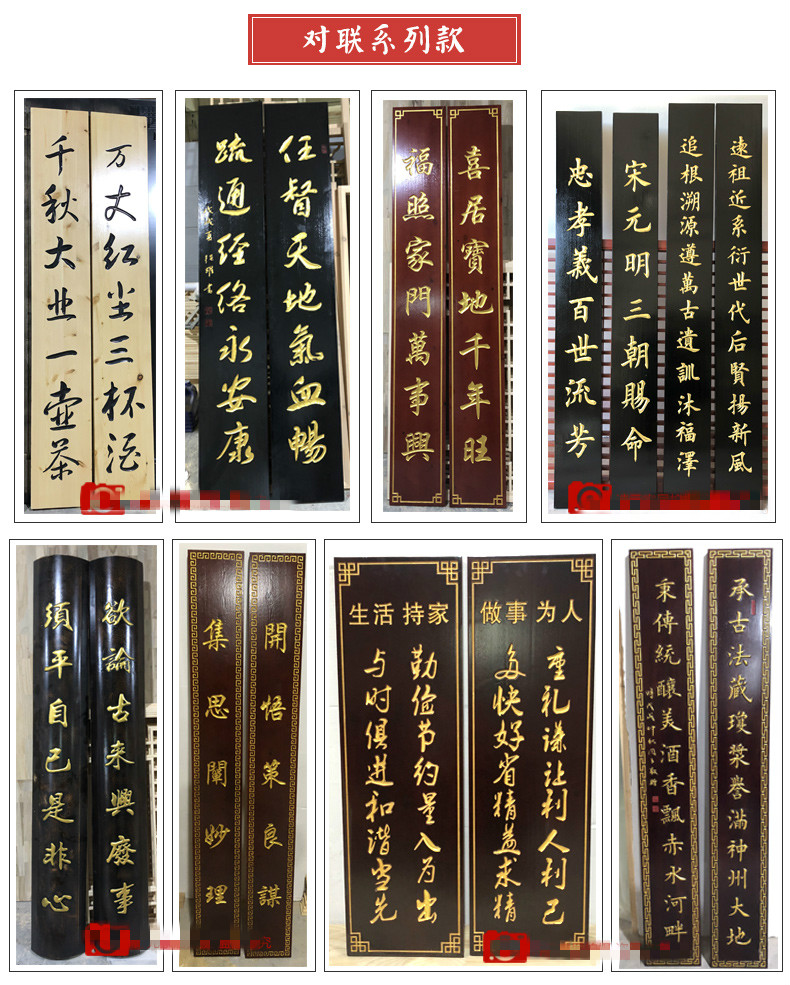 对联系列款
万丈红尘三杯酒
千秋大业一壶茶
任督天地氣血暢
疏通经络永安康
喜居寶地千年旺
福照家門萬事興
远祖近系衍世代后賢揚新風
追根溯源遵萬古遺訓沐福澤
宋元明三朝賜命
忠孝義百世流芳
欲論古来興廢事
須平自己是非心
開悟策良謀
集思闡妙理
生活 持家
勤俭节约量入为出
与时俱进和谐当先
做事 为人
重礼谦让利人利己
多快好省精益求精
承古法藏瓊漿譽滿神州大地
秉傳統釀美酒香飄赤水河畔